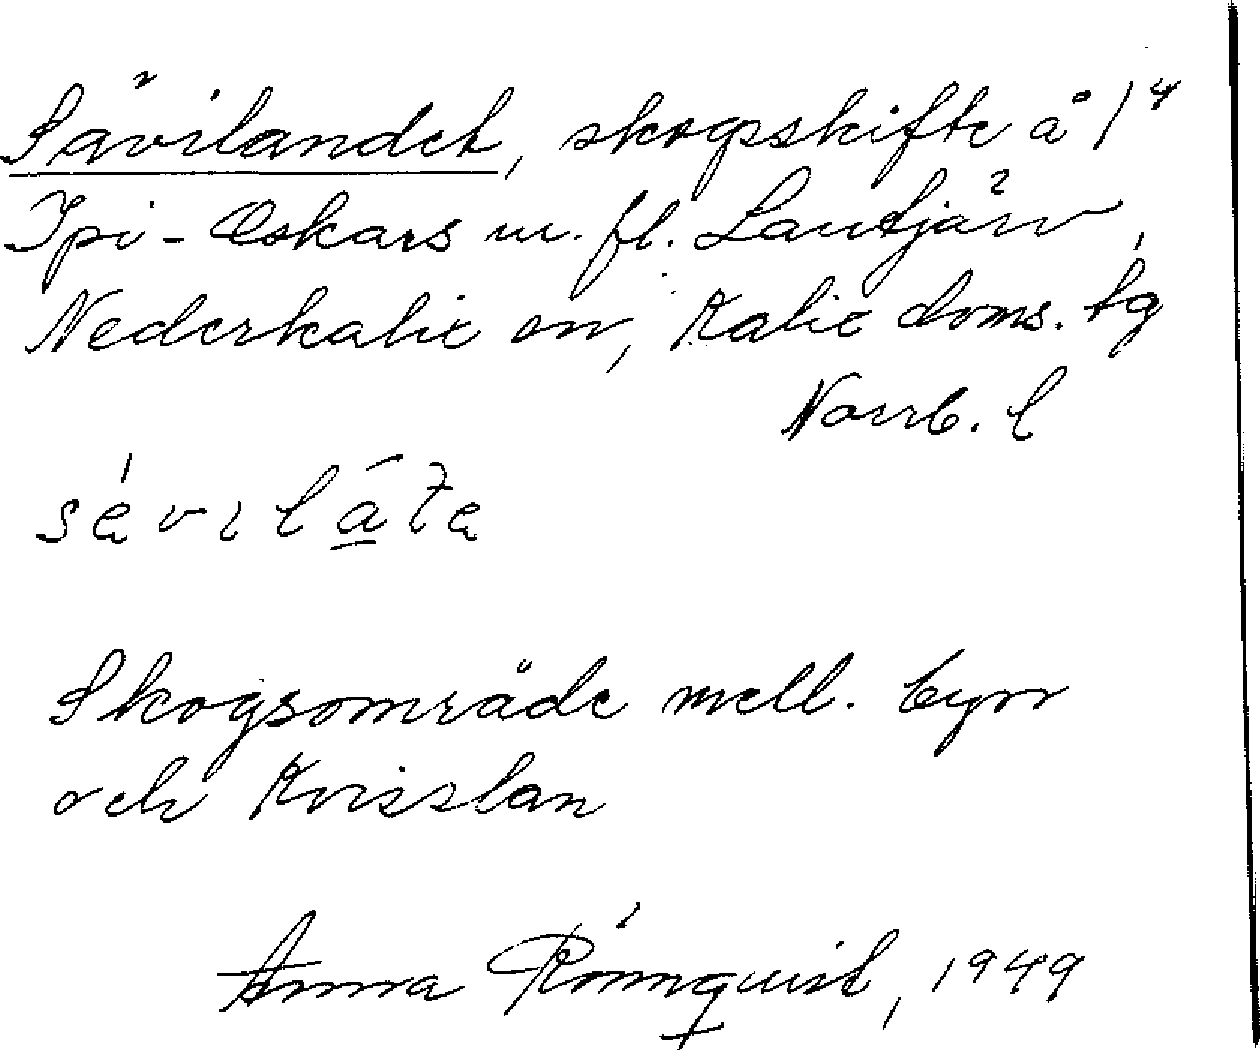 Sävilandet, skogsskifte å 1⁴
Ipi-Oskars m. fl. Lantjärv,
Nederkalix sn, Kalix doms. tg
Norrb. l
Skogsområde mell. byn
och Kvisslan
Anna Rönnquist, 1949